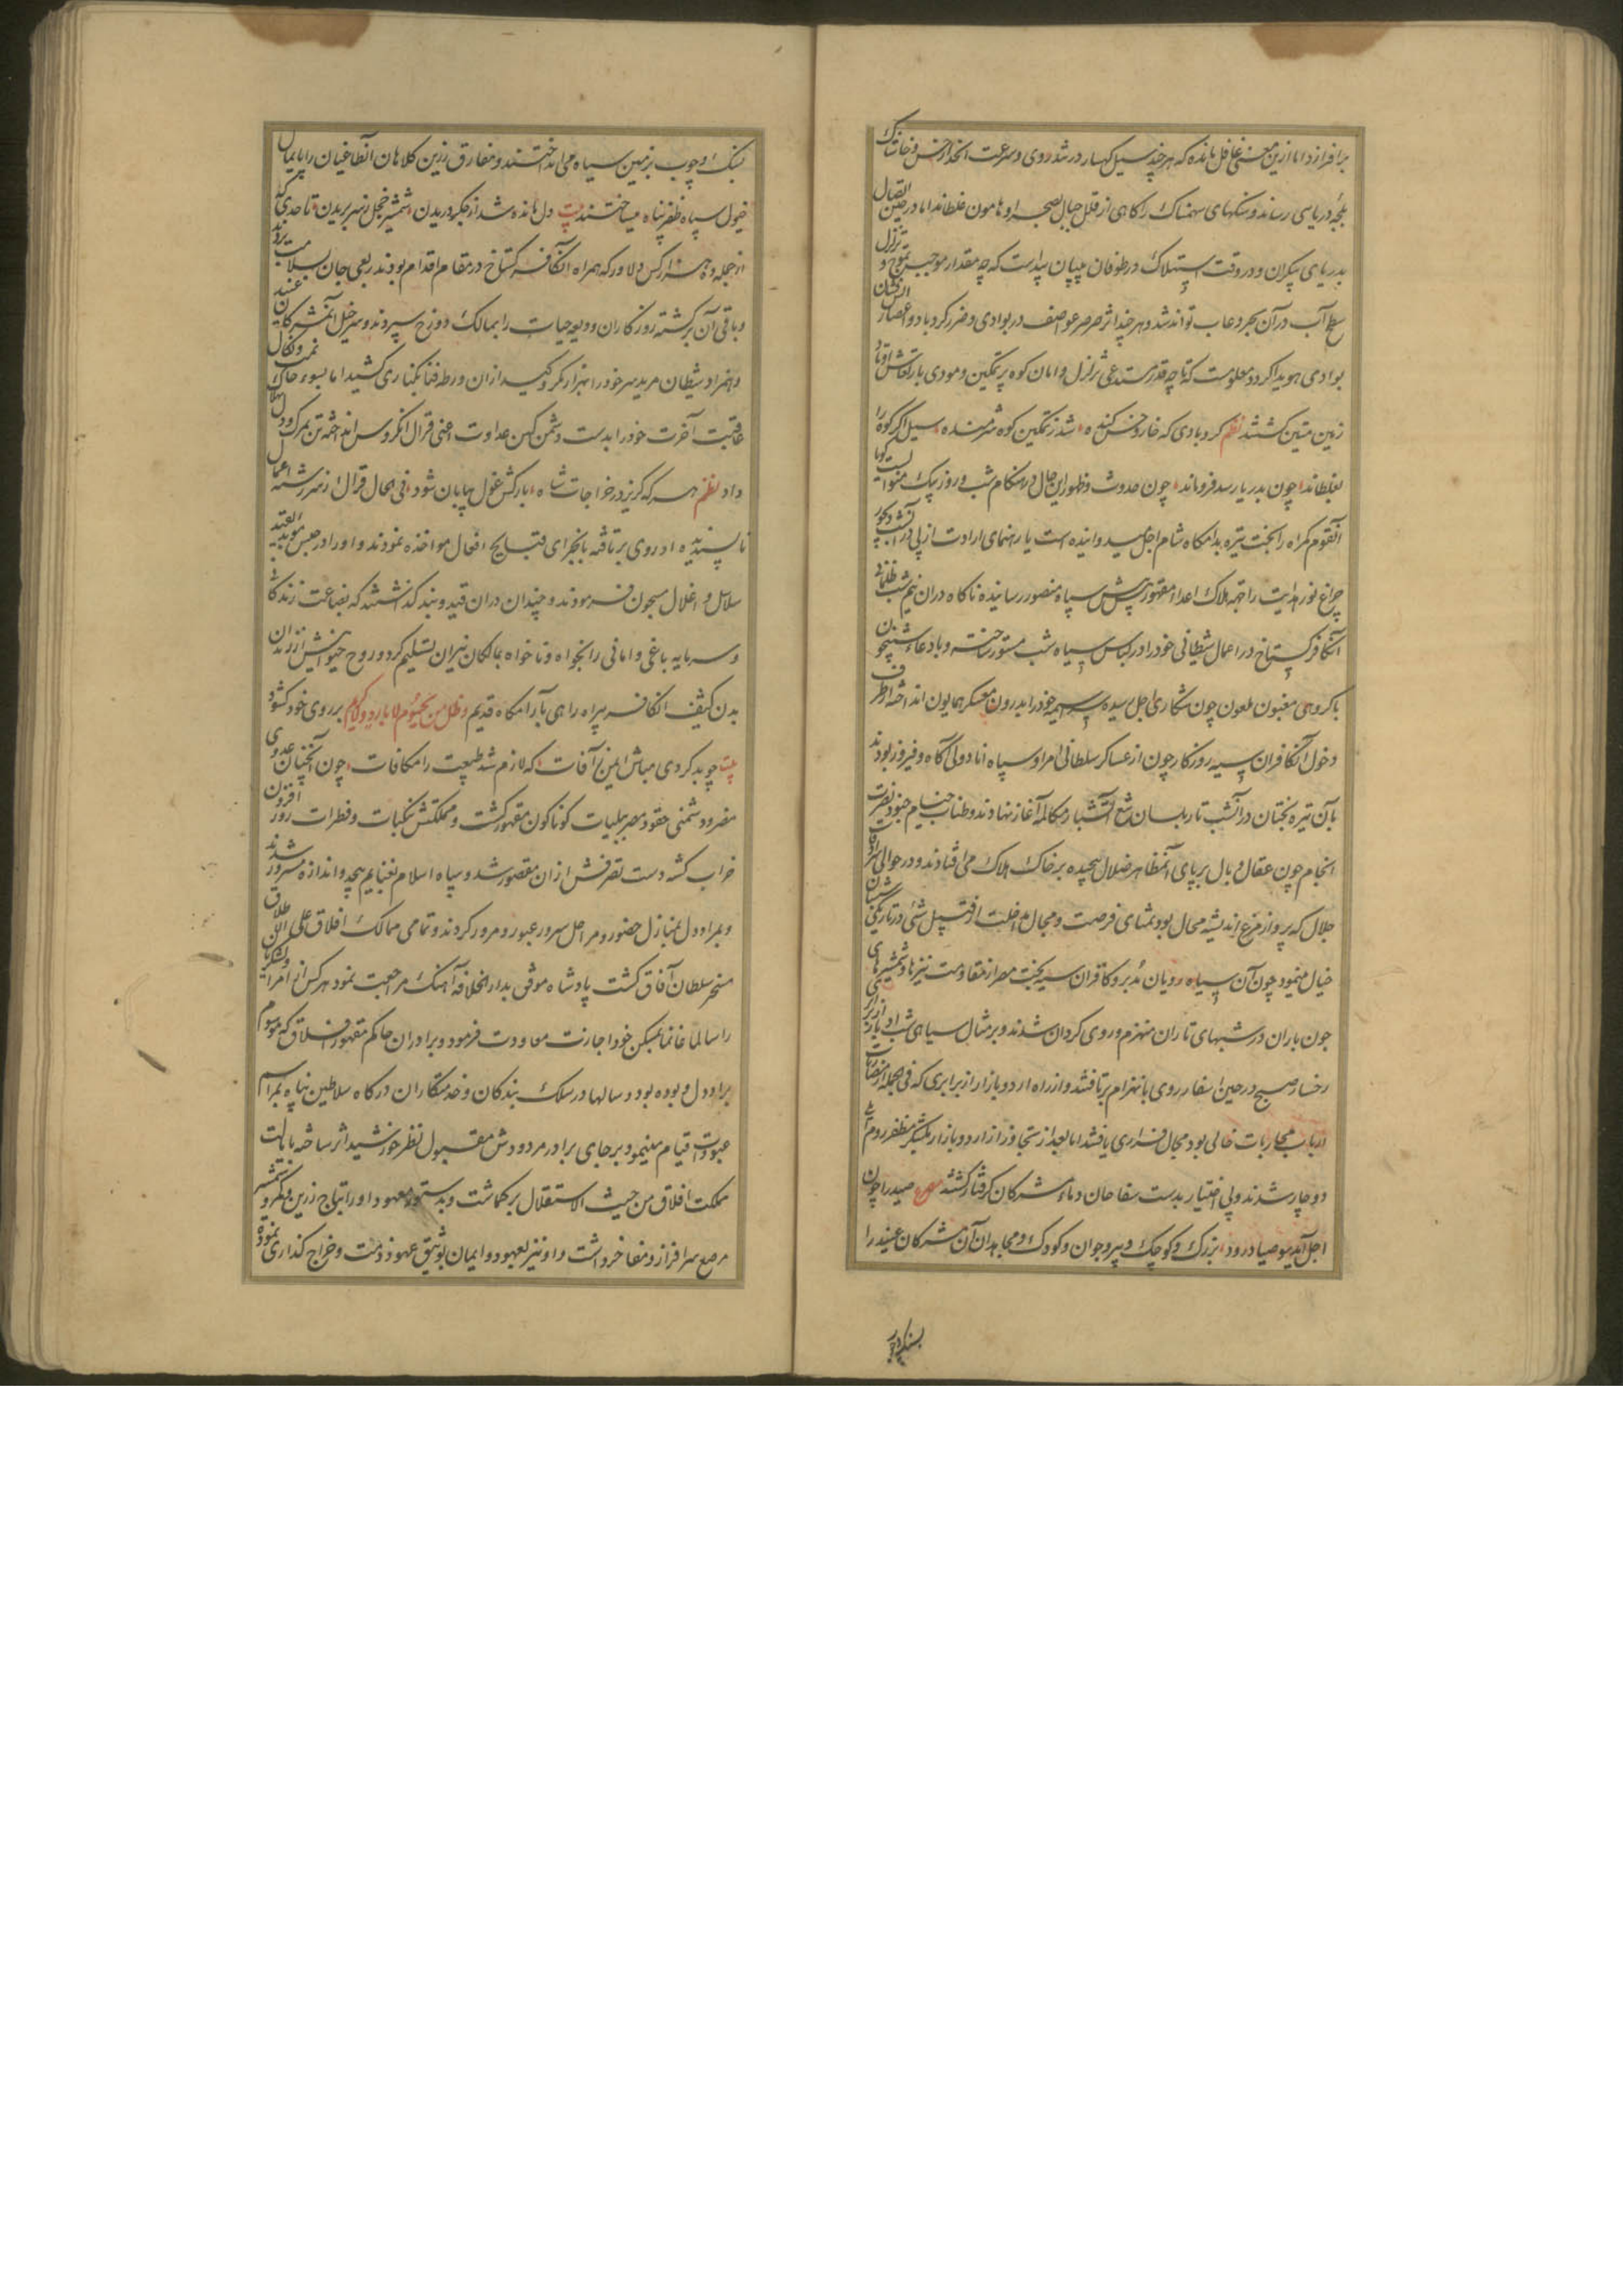 برافرازد اما ازین معنی غافل مانده که هر چند سیل کهسار در تندروی و سرعت انحدار خس و خاشاک
بلجهٔ دریاسی رساند و سنکهای سهمناک را کاهی از قلل جبال بصحرا و هامون غلطاند اما در حین اتصال
بدریای بیکران و در وقت استهلاک در طوفان بی‍پایان پیداست که چه مقدار موجب تموج و تزلزل
سطح آب در آن بحر دعاب تواند شد و هر چند اثر صرصر عواصف در بوادی و ضرر کردباد و اعصار
بوادی هویدا کردد معلومست که تا چه قدر مستدعی تزلزل و امان کوه پر تمکین و مودی بارتعاش اوتاد
زمین متین کشتند نظم کردبادی که خار و خس کنده شد ز تمکین کوه شرمنده سیل اکر کوه را
بغلطاند چون بدریا رسد فروماند چون حدوث و ظهور این حال در هنکام شب و روز بیک منوالست کویا
آنقوم کمراه را بخت تیره بدامکاه شام اجل میدوانیده است یا رهنمای ارادت ازلی در آنشب دیجور
چراغ نور هدایت را جهة هلاک اعداء مقهور پیش سپاه منصور رسانیده ناکاه در ان نیم شب ظلمانی
آنکافر کستاخ در اعمال شیطانی خود را در لباس سیاه شب مستور ساخته و بادعاء شبیخون
با کروهی مغبون ملعون چون شکاری اجل رسیده سراسیمه خود را بدرون معسکر همایون انداخته از طرف
دخول آنکافران سیه روزکار چون از عساکر سلطانی امرا و سپاه انادولی آکاه و فیروز بودند
بآن تیره بختان در آنشب تار بلسان تیغ آتشبار مکالمه آغاز نهادند و طناب خیام جنود نصرت
انجام چون عقال وبال بر پای آنمظاهر ضلال پیچیده بر خاک هلاک می افتادند و در حوالی سرادقات
جلال که پرواز مرغ اندیشه محال بود تمشای فرصت و مجال مداخلت از قبیل شئی در تاریکی شبان
خیال مینمود چون آن سیاه رویان مدبر و کافران سیه بخت مصر از مقاومت نیزها و شمشیرهای
چون باران در شبهای تاران منهزم و روی کردان شدند و بر مثال سیاهی شب ادبار از برابر
رخسار صبح در حین اسفار روی بانهزام برتافتند و از راه اردو بازار از برابری که فی الجمله از مضارت
ارباب محاربات خالی بود مجال فراری یافتند اما بعد از تجاوز از اردو بازار بلشکر مظفر روم ایلی
دوچار شدند و بی اختیار بدست سفاحان دماء مشرکان کرفتار کشتند مصرع صید را چون
اجل آید سوی صیاد رود بزرک و کوچک و پیر و جوان و کودک و مجاهدان آن مشرکان عنید را
بسنک و چوب
بسنک و چوب بزمین سیاه می انداختند و مفارق زرین کلاهان آنطاغیان را پایمال
خیول سپاه ظفرپناه میساختند بیت دل مانده شد از جکر دریدن شمشیر خجل ز سر بریدن تا حدی که
از جمله ده هزار کس دلاور که همراه آنکافر کستاخ در مقام اقدام بودند ربعی جان بسلامت بردند
و باقی آن برکشته روزکاران ودیعه حیات را بممالک دوزخ سپردند و سر خیل آنمشرکان عنید
و همراد شیطان مرید سر خود را بهزار مکر و کید از ان ورطه فنا بکناری کشید اما بسوء خاتمت و نکال
عاقبت آخرت خود را بدست دشمن کهن عداوت اعنی قرال انکروس انداخته تن بمرک و دل بهلاک
داد نظم هر که کریزد ز خراجات شاه بارکش غول بیابان شود فی الحال قرال از سررشته اعمال
ناپسندیده او روی برتافته بانجرای قبایح افعال مواخذه نمودند و او را در حبس موبد بقید
سلاسل و اغلال مسجون فرمودند و چندان در ان قید و بند کذاشتند که بضاعت زندکانی
و سرمایه باغی و امانی را بخواه و ناخواه بمالکان نیران تسلیم کرد و روح حیوانیش از زندان
بدن کثیف آنکافر بیراه راهی بآرامکاه قدیم وظل من یحموم لا بارد ولا کریم بر روی خود کشود
بیت چو بد کردی مباش ایمن ز آفات که لازم شد طبیعت را مکافات چون آنچنان عدوی
مضر و دشمنی حقود مصر ببلیات کوناکون مقهور کشت و مملکتش بنکبات و فطرات روز افزون
خراب کشته دست تصرفش از ان مقصور شد و سپاه اسلام بغنایم بیحد و اندازه مسرور شدند
و بمراد دل بمنازل حضور و مراحل سرور عبور و مرور کردند و تمامی ممالک افلاق علی الاطلاق
مسخر سلطان آفاق کشت پادشاه موفق بدار الخلافه آهنک مراجعت نمود هر کس از امراء و لشکریان
را سالما غانما بمسکن خود اجازت معاودت فرمود و برادران حاکم مقهور افلاق که موسوم
برادول و بوده بود و سالها در سلک بندکان و خدمتکاران درکاه سلاطین پناه بمراسم
عبودیت قیام مینمود بر جای برادر مردودش مقبول نظر خورشید اثر ساخته بایالت
مملکت افلاق من حیث الاستقلال برکماشت و بدستور معهود او را بتاج زرین و کمر و شمشیر
مرصع سرافراز و مفاخر داشت و او نیز بعهود و ایمان توثیق عهود و ذمت و خراج کذاری نموده